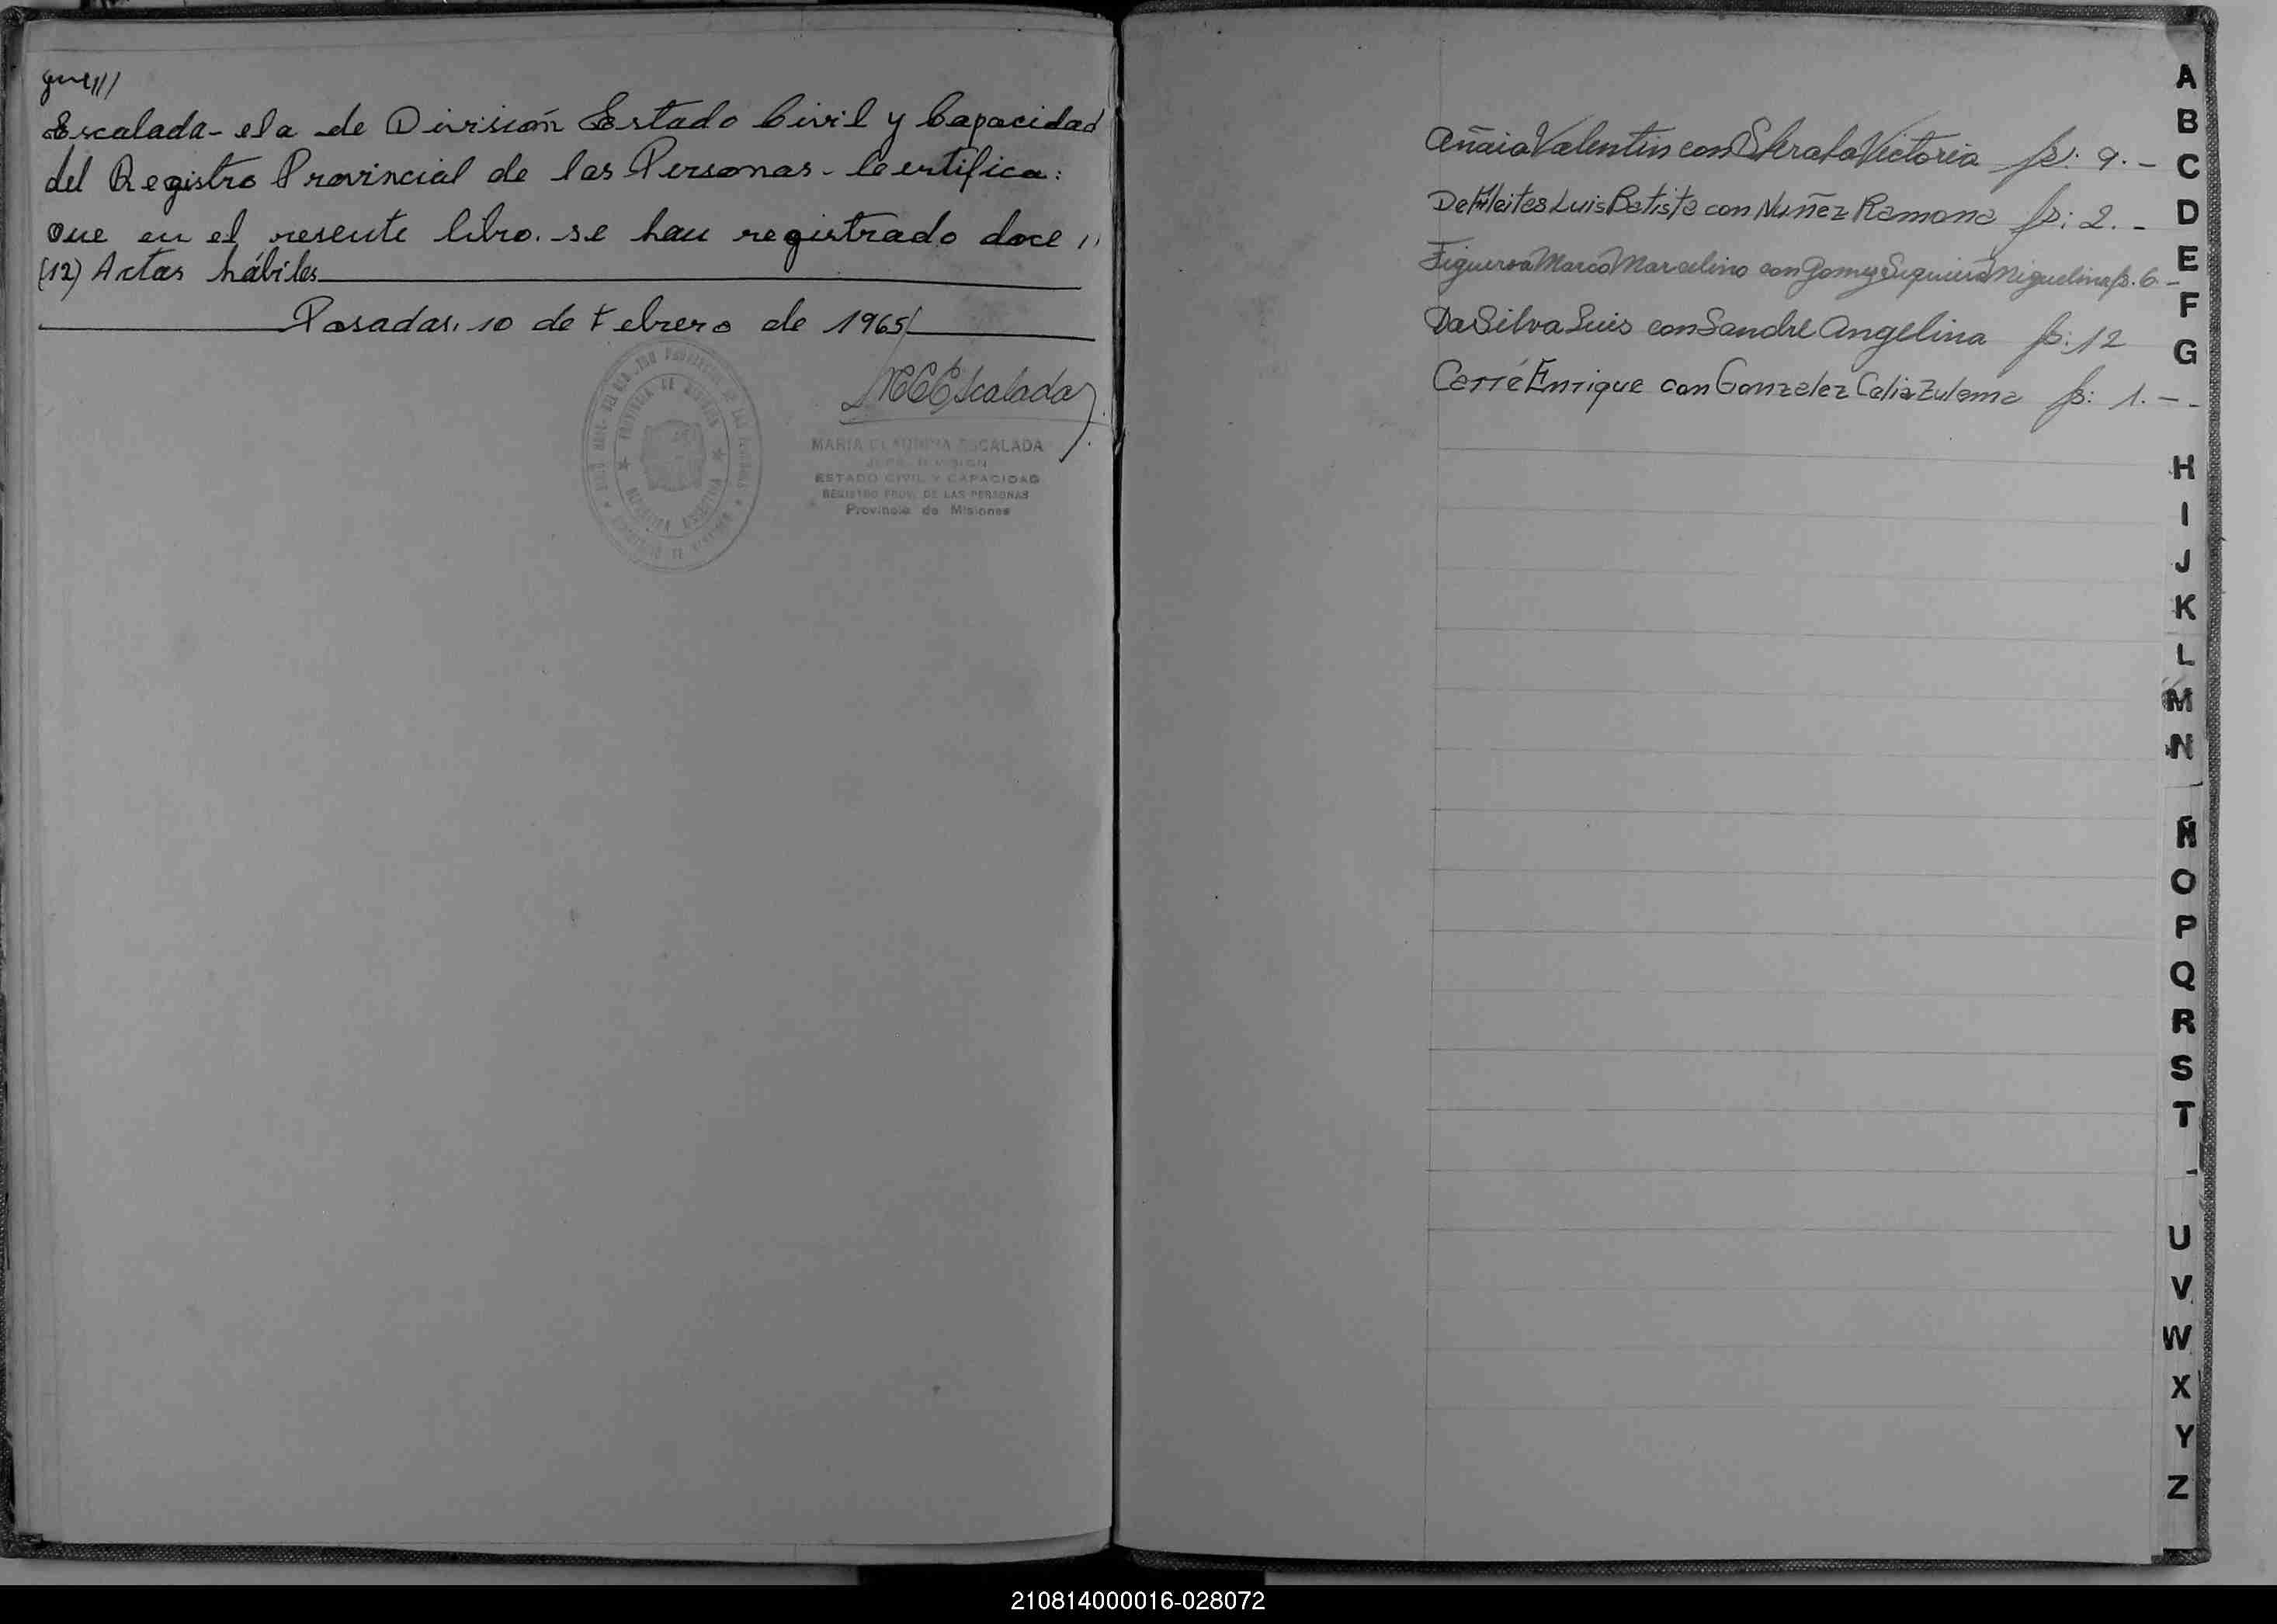 Escalada- ela de División Estado Civil y Capacidad
del Registro Provincial de las Personas- Certifica:
Que en el presente libro. se han registrado doce //
(12) Actas hábiles
Posadas, 10 de Febrero de 1965/
MCEscalada
MARIA CLAUDINA ESCALADA
JEFE DIVISION
ESTADO CIVIL Y CAPACIDAD
REGISTRO PROV. DE LAS PERSONAS
Provincia de Misiones
PROVINCIA DE MISIONES
REPUBLICA ARGENTINA
Añaia Valentin con Victoria fs: 9.-
De Mleites Luis Batista con Nuñez Ramona fs: 2.-
Figueroa Marco Marcelino con Gomez Siqueira Miguelina fs. 6-
Da Silva Luis con Sandre Angelina fs: 12
Cerré Enrique con Gonzalez Celia Zulema fs: 1.--
A
B
C
D
E
F
G
H
I
J
K
L
M
N
Ñ
O
P
Q
R
S
T
U
V
W
X
Y
Z
210814000016-028072